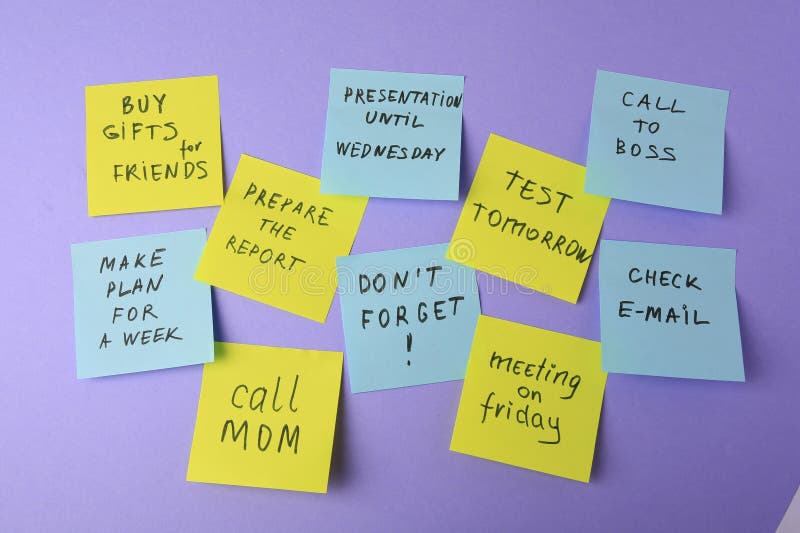 BUY
GIFTS for
FRIENDS
PRESENTATION
UNTIL
WEDNESDAY
CALL
TO
BOSS
PREPARE
THE
REPORT
TEST
TOMORROW
MAKE
PLAN
FOR
A WEEK
DON'T
FORGET
!
CHECK
E-MAIL
call
MOM
meeting
on
friday
dreamstime